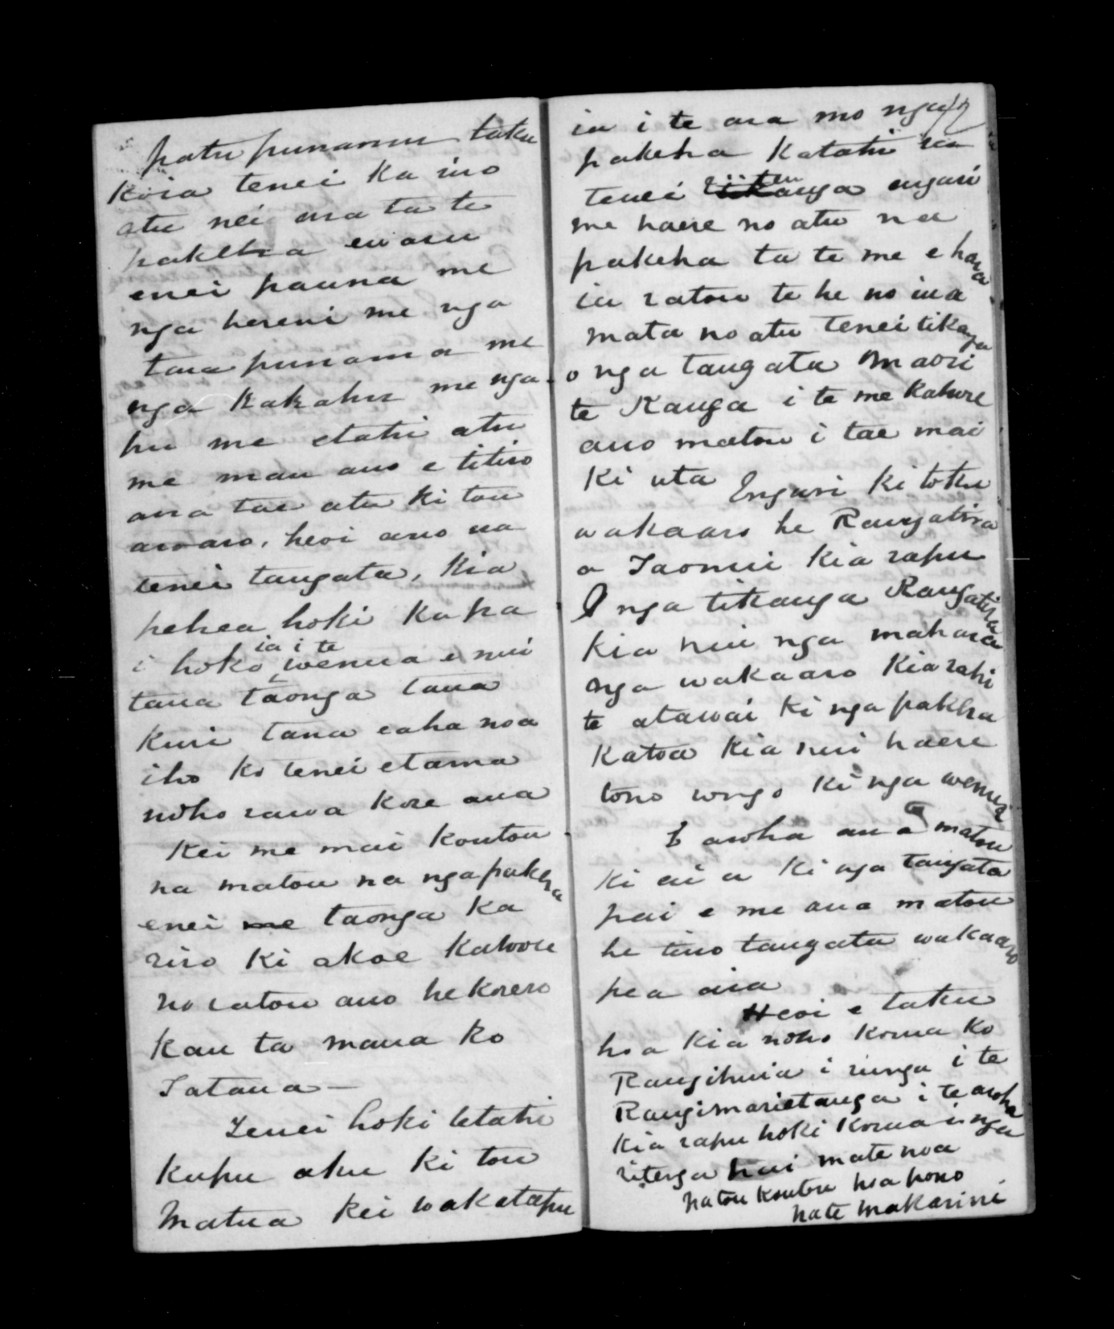 patu punamu taku
koia tenei ka riro
atu nei ara ta te
pakeha ewaru
enei pauna me
nga hereni me nga
tara punama me
nga kakahu me nga
hu me etahi atu
me mau ano e titiro
ana tae atu ki tou
aroaro, heoi ano na
tenei tangata, kia
pehea hoki ka pa
i hoko ia i te wenua e nui
tana taonga tana
kuri tana eaha noa
iho ko tenei etama
noho rawa kore ana
kei me mai koutou
na matou na nga pakeha
enei me taonga ka
riro ki akoe kahore
no ratou ano he korero
kau ta mana ko
Tatana —
Tenei hoki tetahi
kupu aku ki tou
Matua kei wakatapu
ia i te ara mo nga
pakeha katahi ra
tenei ritenga engari
me haere no atu na
pakeha ta te me ehara
ia ratou te he no mua
mata no atu tenei tikaga
o nga tangata Maori
te Kanga i te me kahore
ano matou i tae mai
ki uta Engari ki toku
wakaaro he Rangatira
a Taonui kia rapu
I nga tikanga Rangatira
kia nui nga mahara
nga wakaaro kia rahi
te atawai ki nga pakeha
katoa kia nui haere
tono ingo ki nga wenua
E aroha ana matou
ki ai a ki nga tangata
pai e me ana matou
he tino tangata wakaaro
pea aia
Heoi e taku
hoa kia noho korua ko
Rangihuia i runga i te
Rangimarietanga i te aroha
kia rapu hoki korua i nga
ritenga hui mate noa
na tou koutou hoa pono
na te Makarini